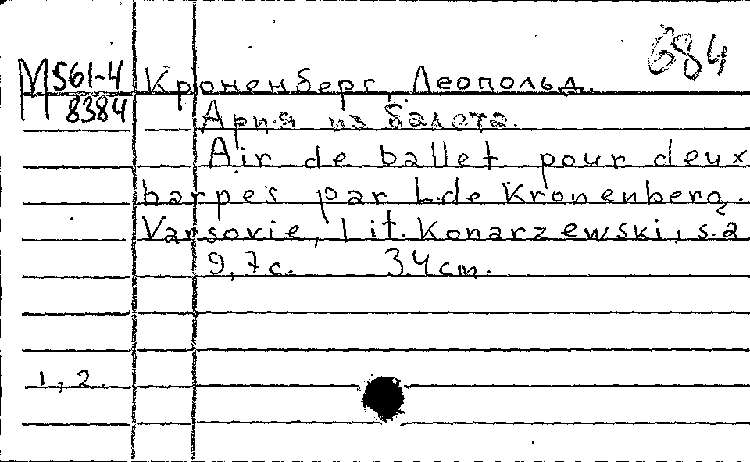 684
М 561-4 Кроненберг, Леопольд.
8384 Ария из балета.
Air de ballet pour deux
harpes par L. de Kronenberg.
Varsovie, Lit. Konarzewski, s.a
9,7 с. 34 cm.
1, 2.